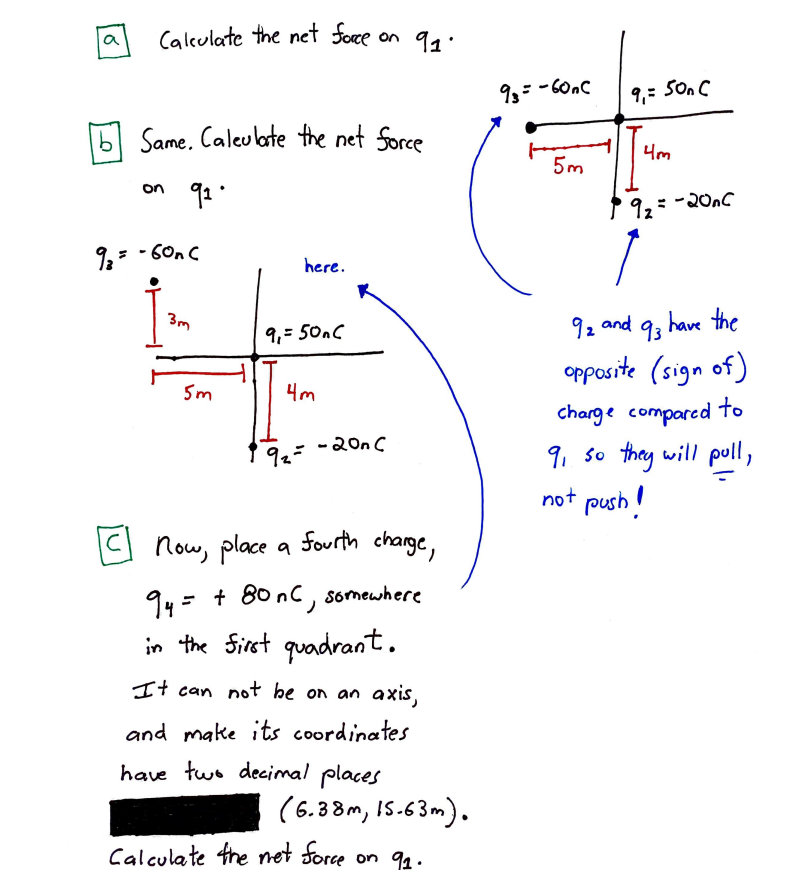 a Calculate the net force on q1.
q3 = -60nC
q1 = 50nC
5m
4m
q2 = -20nC
b Same. Calculate the net force
on q1.
q3 = -60nC
here.
3m
q1 = 50nC
5m
4m
q2 = -20nC
q2 and q3 have the
opposite (sign of)
charge compared to
q1 so they will pull,
not push!
C Now, place a fourth charge,
q4 = + 80nC, somewhere
in the first quadrant.
It can not be on an axis,
and make its coordinates
have two decimal places
(6.38m, 15.63m).
Calculate the net force on q1.